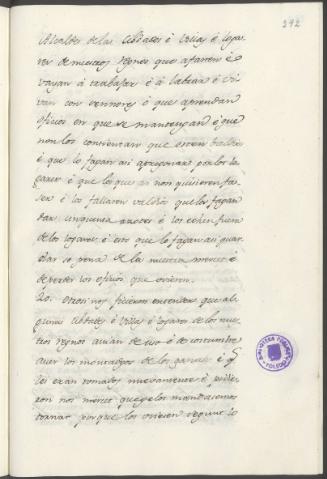 292
Alcaldes de las Cibdades é Villas é Logares
res de nuestros regnos que apremien é
vayan á trabajar é á labrar é vi
van con sennores é que aprendan
oficios en que se mantengan é que
non los consientan que esten baldios
é que lo fagan asi apregonar por los lo
gares é que los que asi non quisieren fa
ser é los fallaren valdios que les fagan
dar cinquenta azotes é los echen fuera
de los logares é esto que lo fagan asi guar
dar so pena de la nuestra merced é
de perder los oficios que ovieren.
20. Otrosi nos ficieron entender que al
gunas cibdades é Villas é logares de los nues
tros regnos avian de uso é de costumbre
aver los montadgos de los ganados é q
les eran tomados nuevamente é pidie
ron nos merced que gelos mandasemos
tornar porque los oviesen segunt lo
BIBLIOTECA PUBLICA
TOLEDO